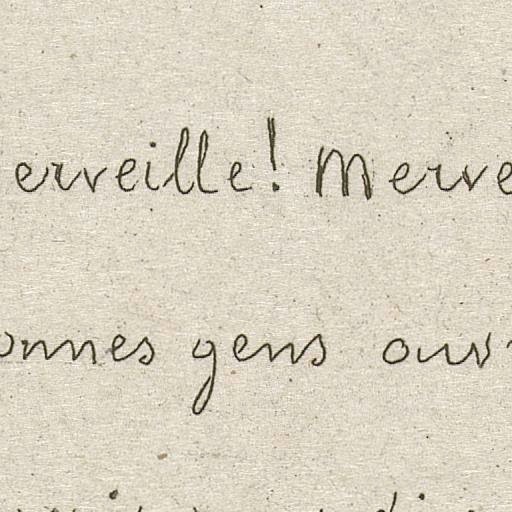 erveille! Merve
onnes gens ouv